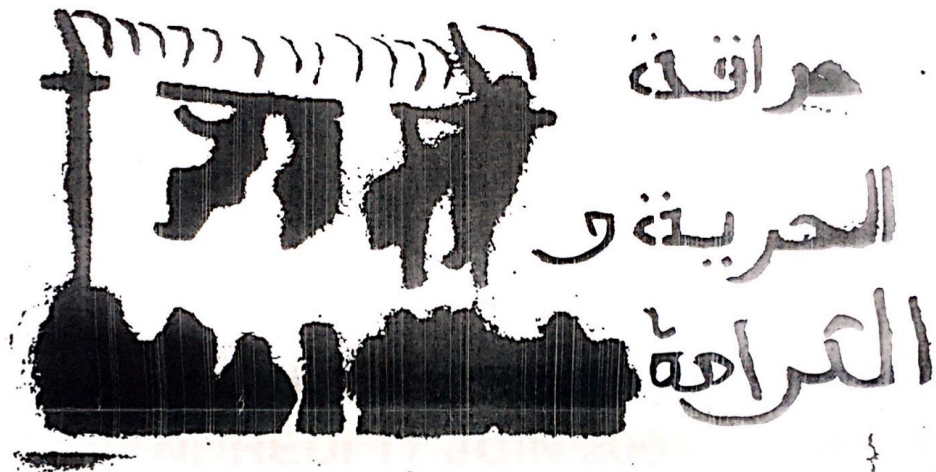 حراقة
الحرية و
الكرامة